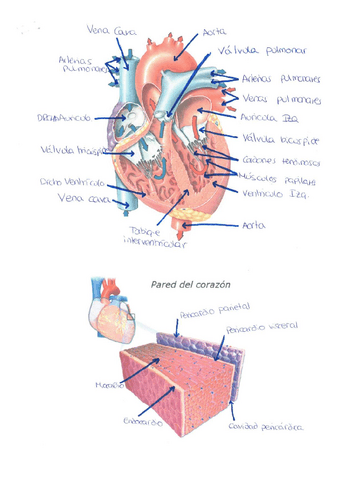 Vena Cava
Aorta
Válvula pulmonar
Arterias
pulmonares
Arterias pulmonares
Venas pulmonares
Aurícula Izq
Válvula tricúspide
Válvula bicúspide
Cordones tendinosos
Músculos papilares
Dcho Ventrículo
Ventrículo Izq.
Vena cava
Aorta
Tabique
interventricular
Pared del corazón
Pericardio parietal
Pericardio visceral
Miocardio
Endocardio
Cavidad pericárdica